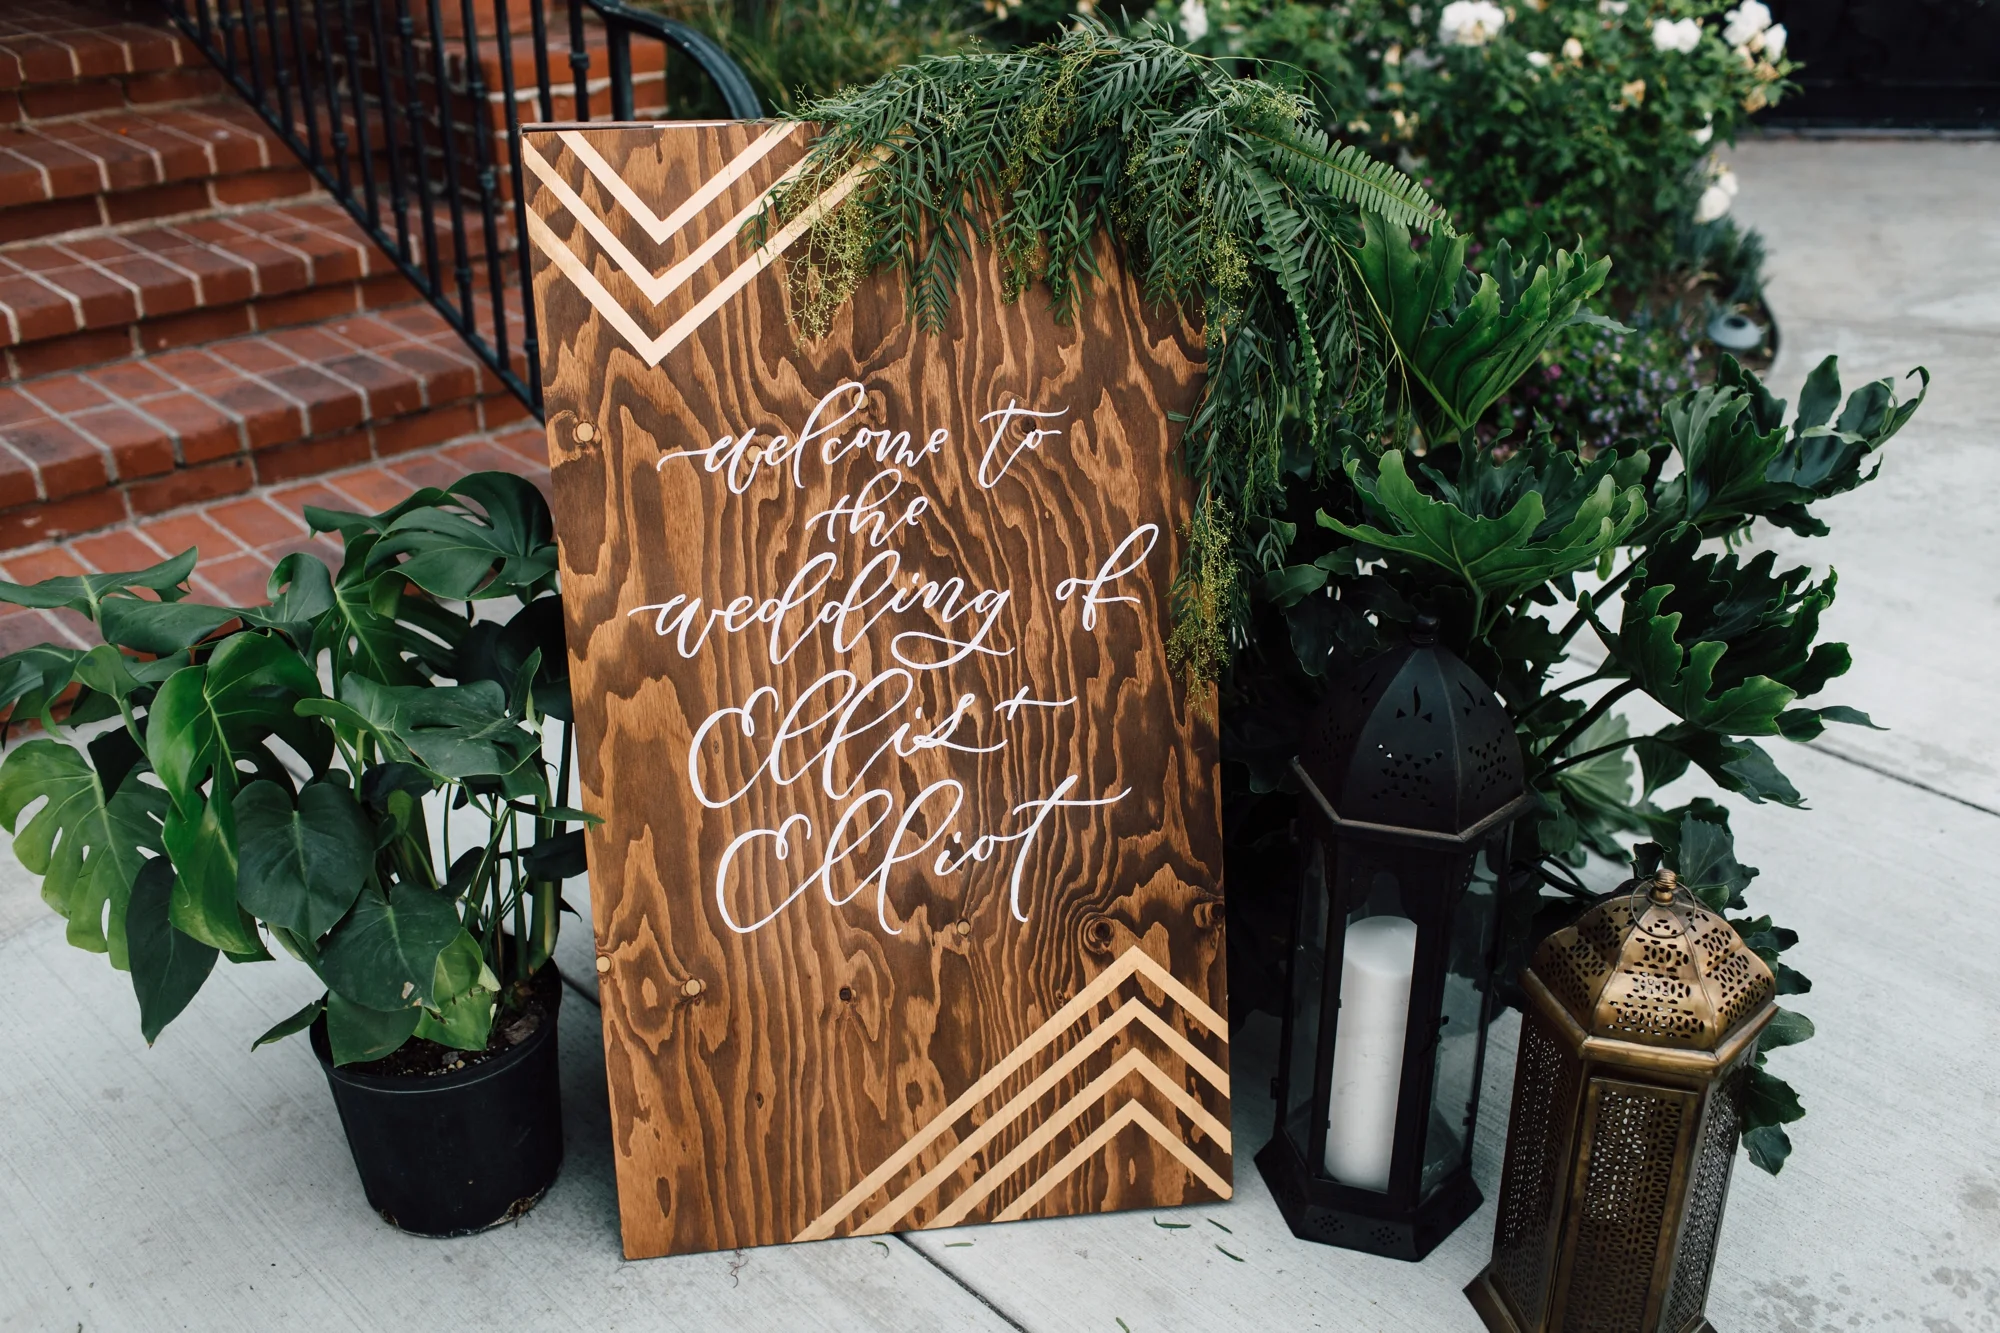 welcome to
the
wedding of
Ellis +
Elliot